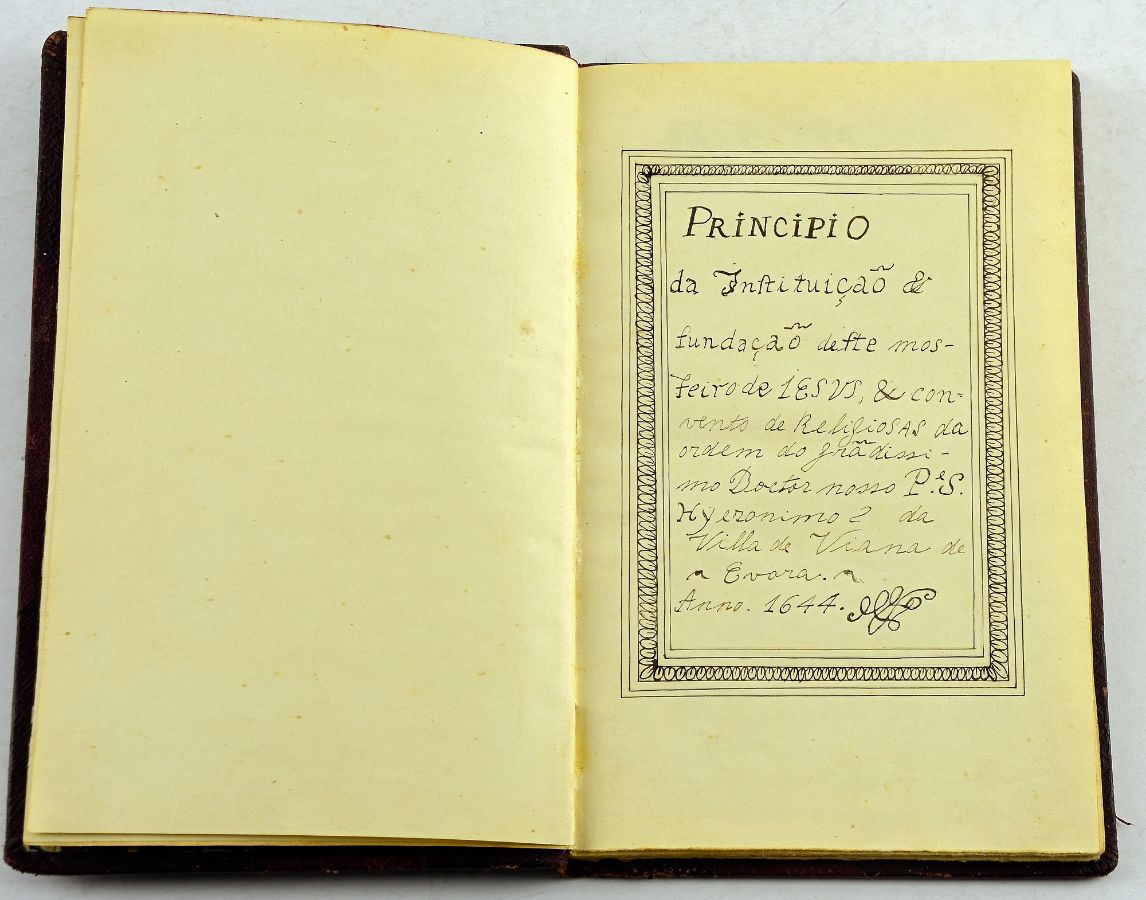 PRINCIPIO
da Inſtituiçaõ &
fundaçaõ deſte mos-
teiro de IESVS, & con-
vento de Religiosas da
ordem do grãdissi-
mo Doctor nosso P.e S.
Hyeronimo da
Villa de Viana de
Evora.
Anno. 1644.